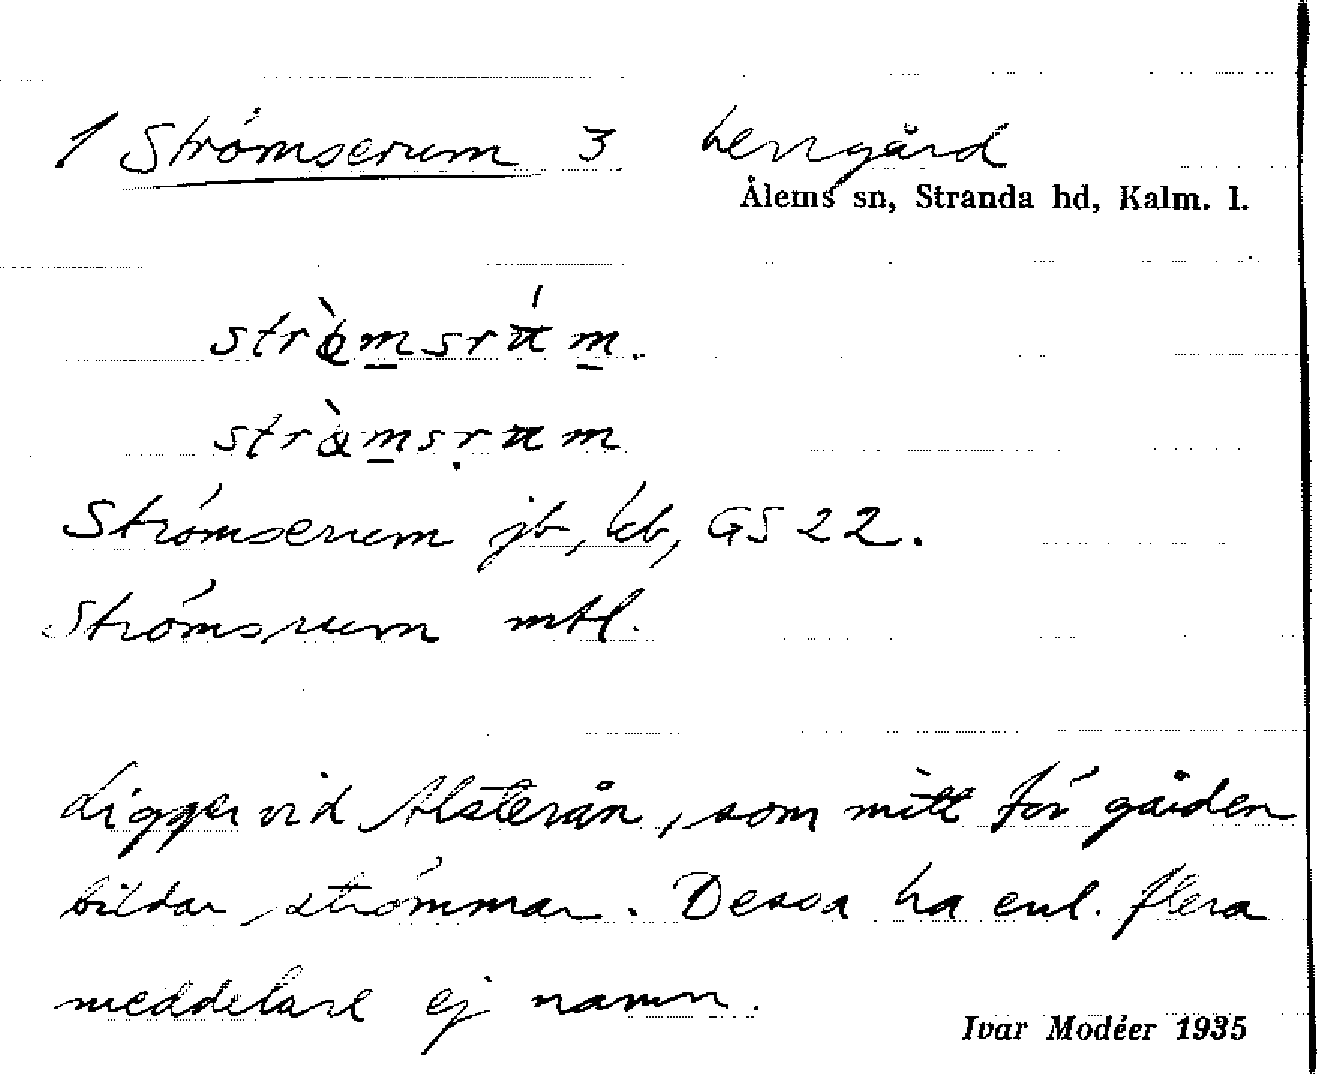 1 Strömserum 3 herrgård
Ålems sn, Stranda hd, Kalm. l.
Strömserum jb, kb, GS 22.
Strömsrum mtl.
Ligger vid Alsterån, som mitt för gården
bildar strömmar. Dessa ha enl. flera
meddelare ej namn.
Ivar Modéer 1935